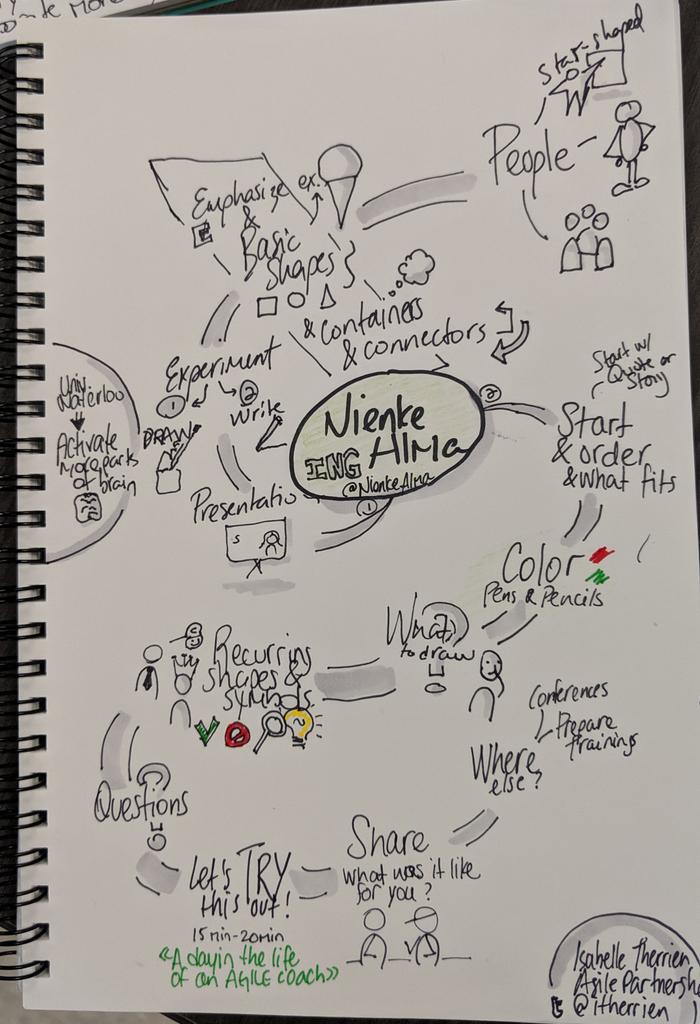 Nienke
ING Alma
@NienkeAlma
1
Presentatio
Experiment
1
2
DRAW
Write
Univ.
Waterloo
Activate
More parts
of brain
Emphasize
ex.
&
Basic
Shapes
& containers
& connectors
People
Star-shaped
2
Start w/
Quote or
Story
Start
& order
& what fits
Color
Pens & Pencils
What
to draw
Recurring
shapes &
symbols
Questions
Let's TRY
this out!
15 min-20min
«A day in the life
of an AGILE COACH»
Share
What was it like
for you?
Where
else?
Conferences
Prepare
trainings
Isabelle Therrien
Agile Partnersh
@itherrien